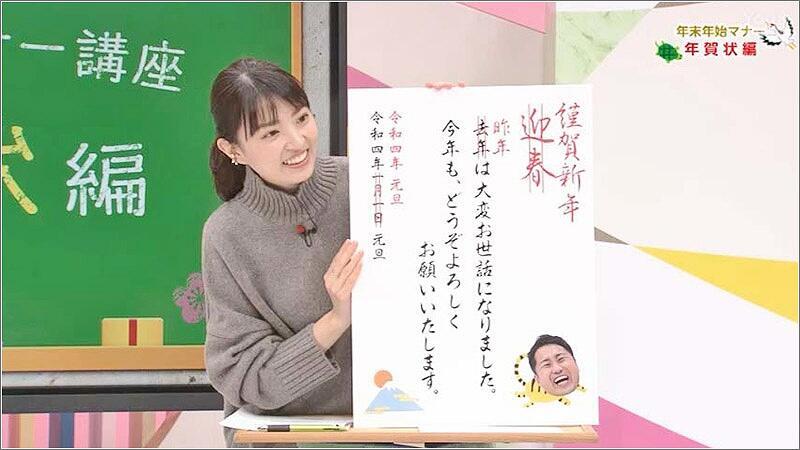 年末年始マナー
年賀状編
ナー講座
編
謹賀新年
迎春
昨年
去年は大変お世話になりました。
今年も、どうぞよろしく
お願いいたします。
令和四年 元旦
令和四年一月一日 元旦